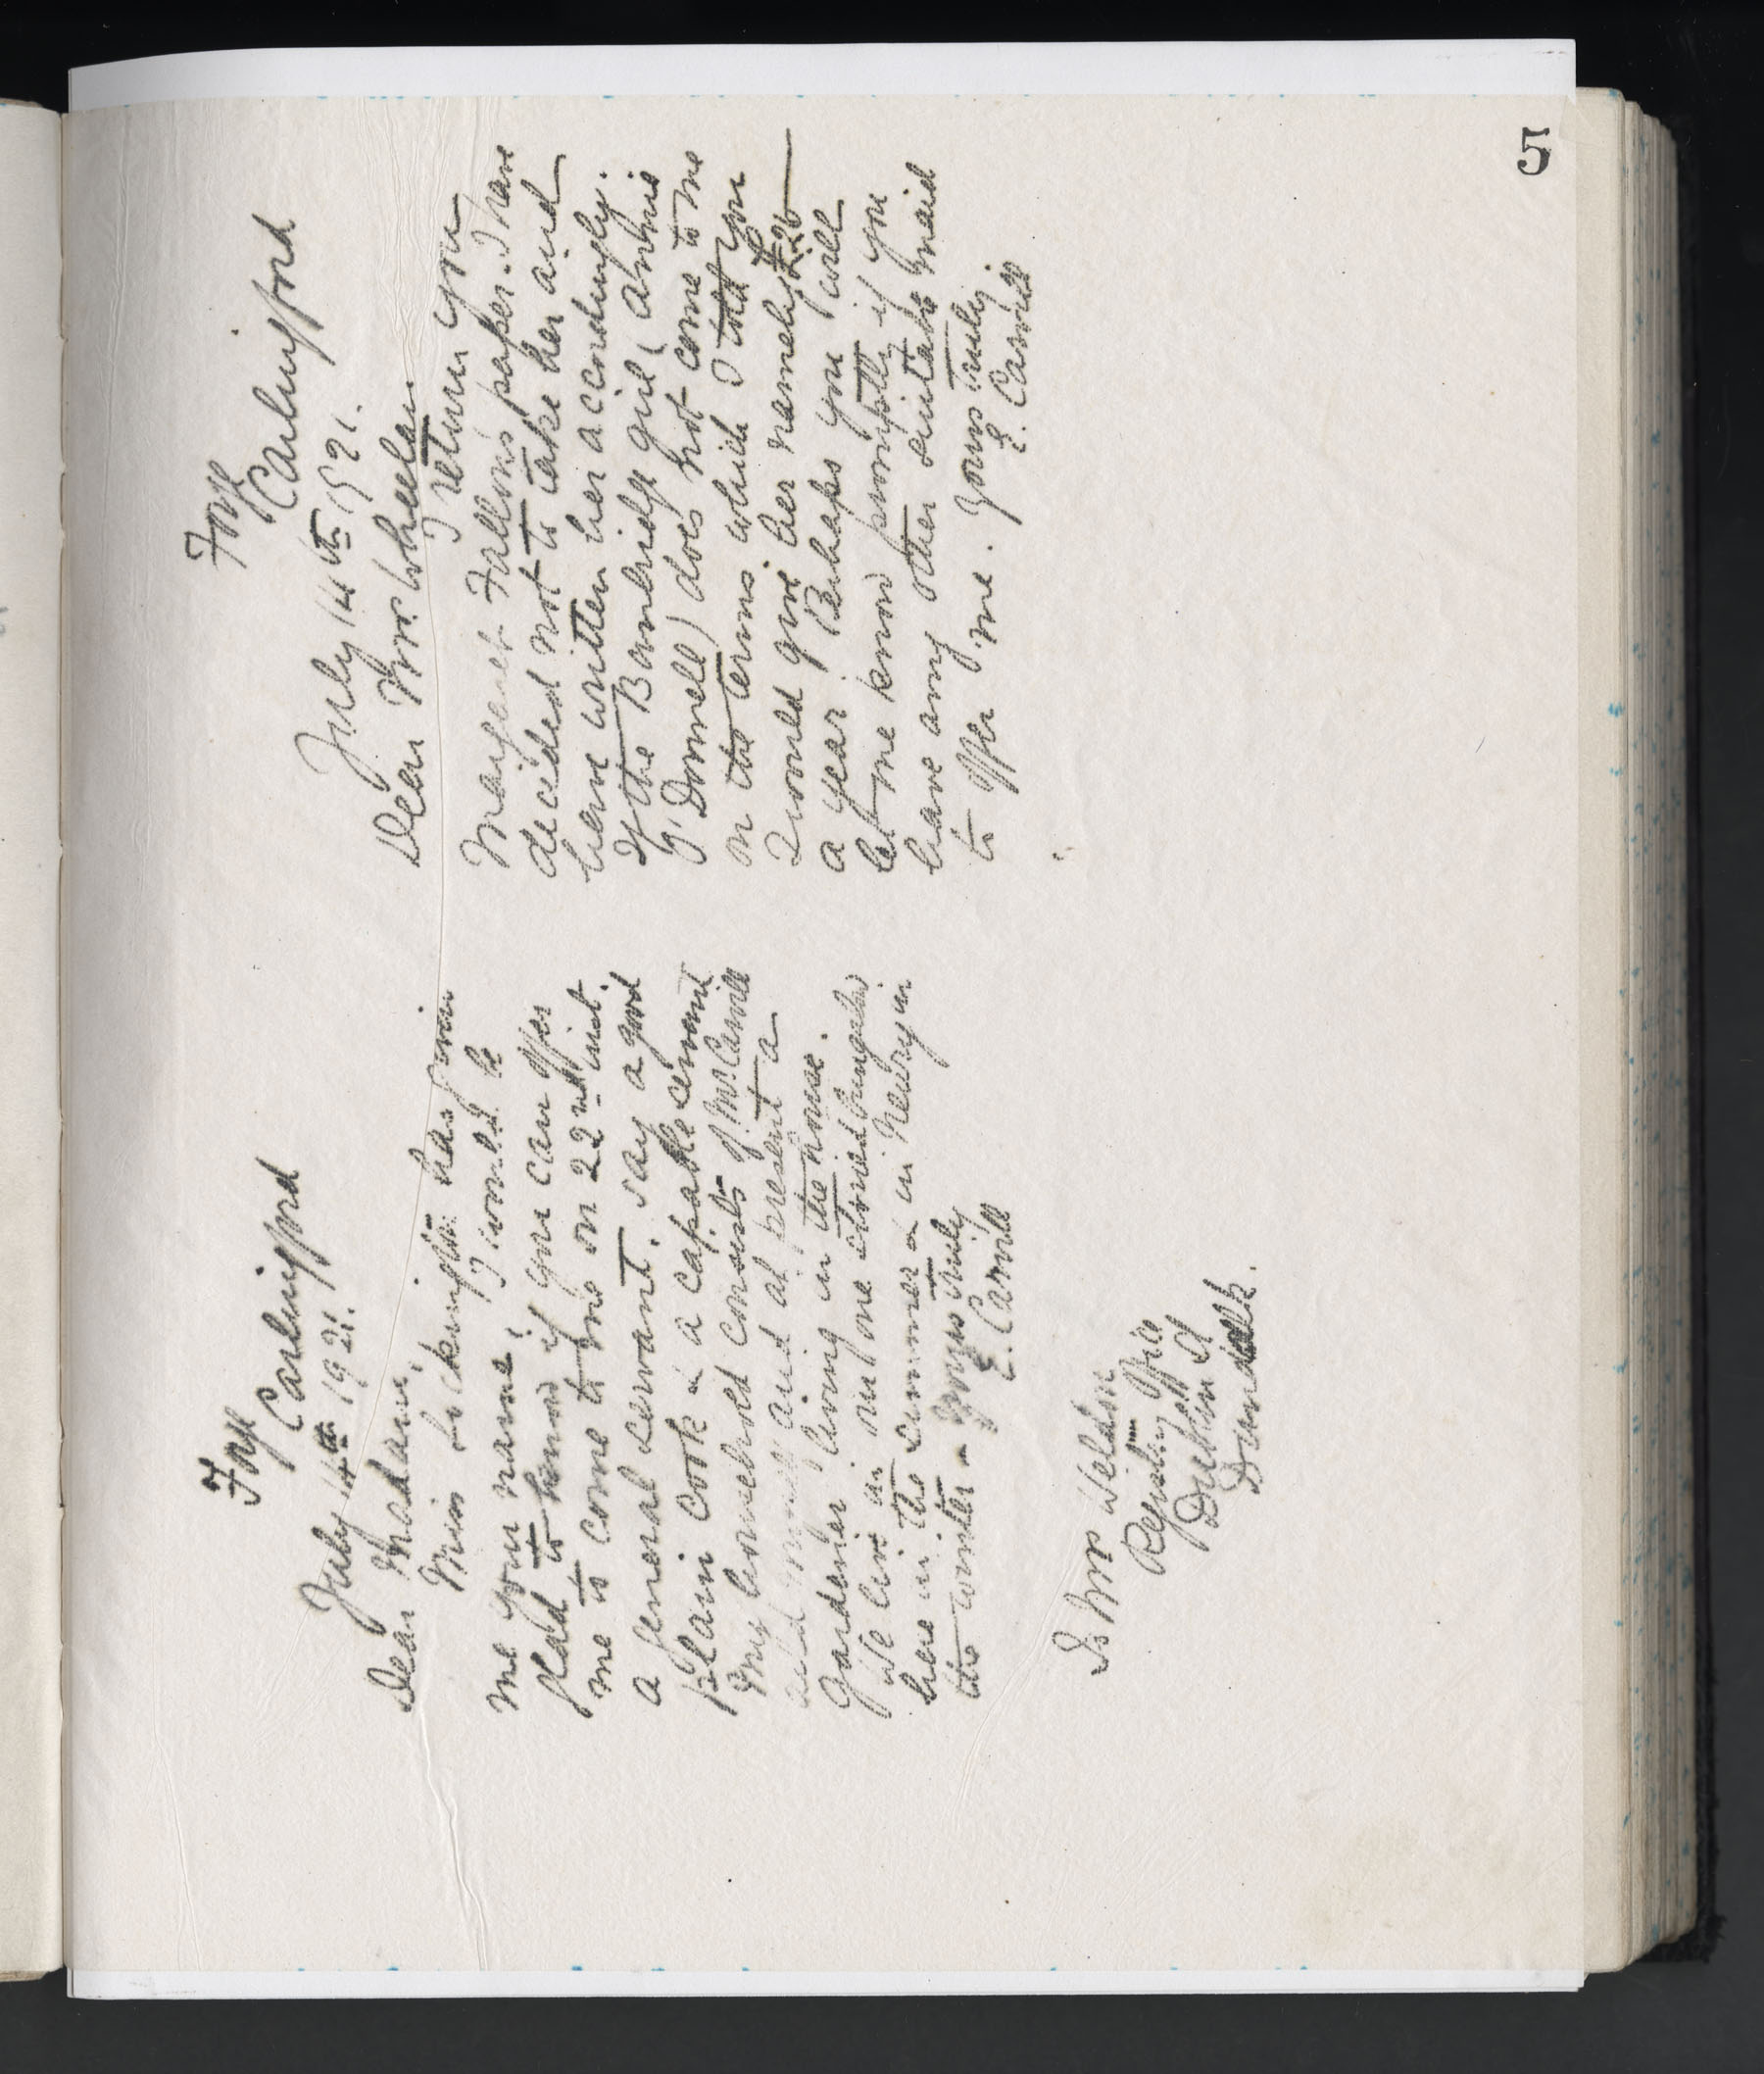 Foye
Carlingford
July 14th 1921.
Dear Madam,
Miss Pilkington has given
me your name, I would be
glad to know if you can offer
me to come to me on 22nd inst.
a general servant, say a good
plain cook & a capable servant
My household consists of Mr Carvill
and myself and at present a
gardener living in the house.
We live in our one storied bungalow
here in the summer & in Newry in
the winter - Yours truly
E. Carvill
To Mrs Weldon
Registry Office
Dublin St
Dundalk.
Foye
Carlingford
July 14th 1921.
Dear Mrs. Whelan
I return you
Margaret Fallon's paper. I have
decided not to take her and
have written her accordingly.
If the Banbridge girl (Annie
O'Donnell) does not come to me
on the terms which I told you
I would give her namely £26
a year. Perhaps you will
let me know promptly if you
have any other suitable maid
to offer me. Yours truly
E. Carvill
5